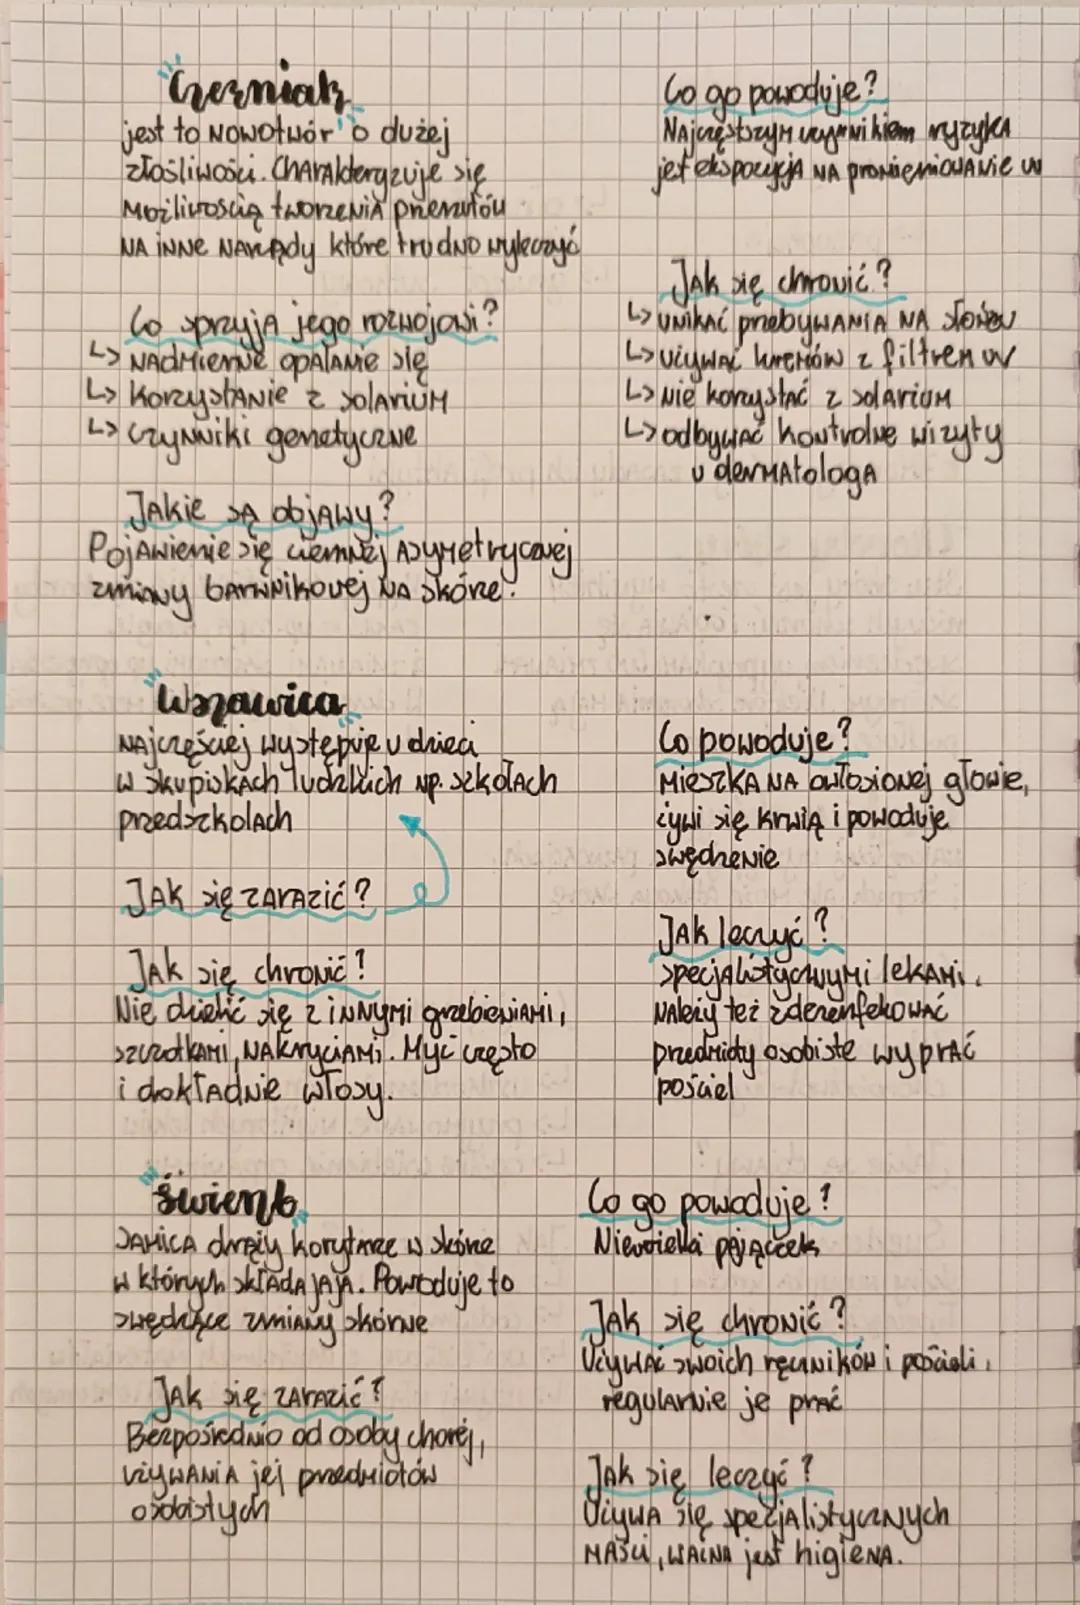 Czerniak
jest to nowotwór o dużej
złośliwości. Charakteryzuje się
możliwością tworzenia przerzutów
na inne narządy które trudno wyleczyć
Co sprzyja jego rozwojowi?
↳ nadmierne opalanie się
↳ korzystanie z solarium
↳ czynniki genetyczne
Jakie są objawy?
Pojawienie się ciemnej asymetrycznej
zmiany barwnikowej na skórze.
Co go powoduje?
Najczęstszym czynnikiem ryzyka
jest ekspozycja na promieniowanie uv
Jak się chronić?
↳ unikać przebywania na słońcu
↳ używać kremów z filtrem uv
↳ nie korzystać z solarium
↳ odbywać kontrolne wizyty
u dermatologa
Wszawica
Najczęściej występuje u dzieci
w skupiskach ludzkich np. szkołach
przedszkolach
Jak się zarazić?
Jak się chronić?
Nie dzielić się z innymi grzebieniami,
szczotkami, nakryciami. Myć często
i dokładnie włosy.
Co powoduje?
Mieszka na owłosionej głowie,
żywi się krwią i powoduje
swędzenie
Jak leczyć?
specjalistycznymi lekami.
Należy też zdezenfekować
przedmioty osobiste wyprać
pościel
Świerzb
Samica drąży korytarze w skórze
w których składa jaja. Powoduje to
swędzące zmiany skórne
Jak się zarazić?
Bezpośrednio od osoby chorej,
używania jej przedmiotów
osobistych
Co go powoduje?
Niewielki pajączek
Jak się chronić?
Używać swoich ręczników i pościeli,
regularnie je prać
Jak się leczyć?
Używa się specjalistycznych
maści, ważna jest higiena.